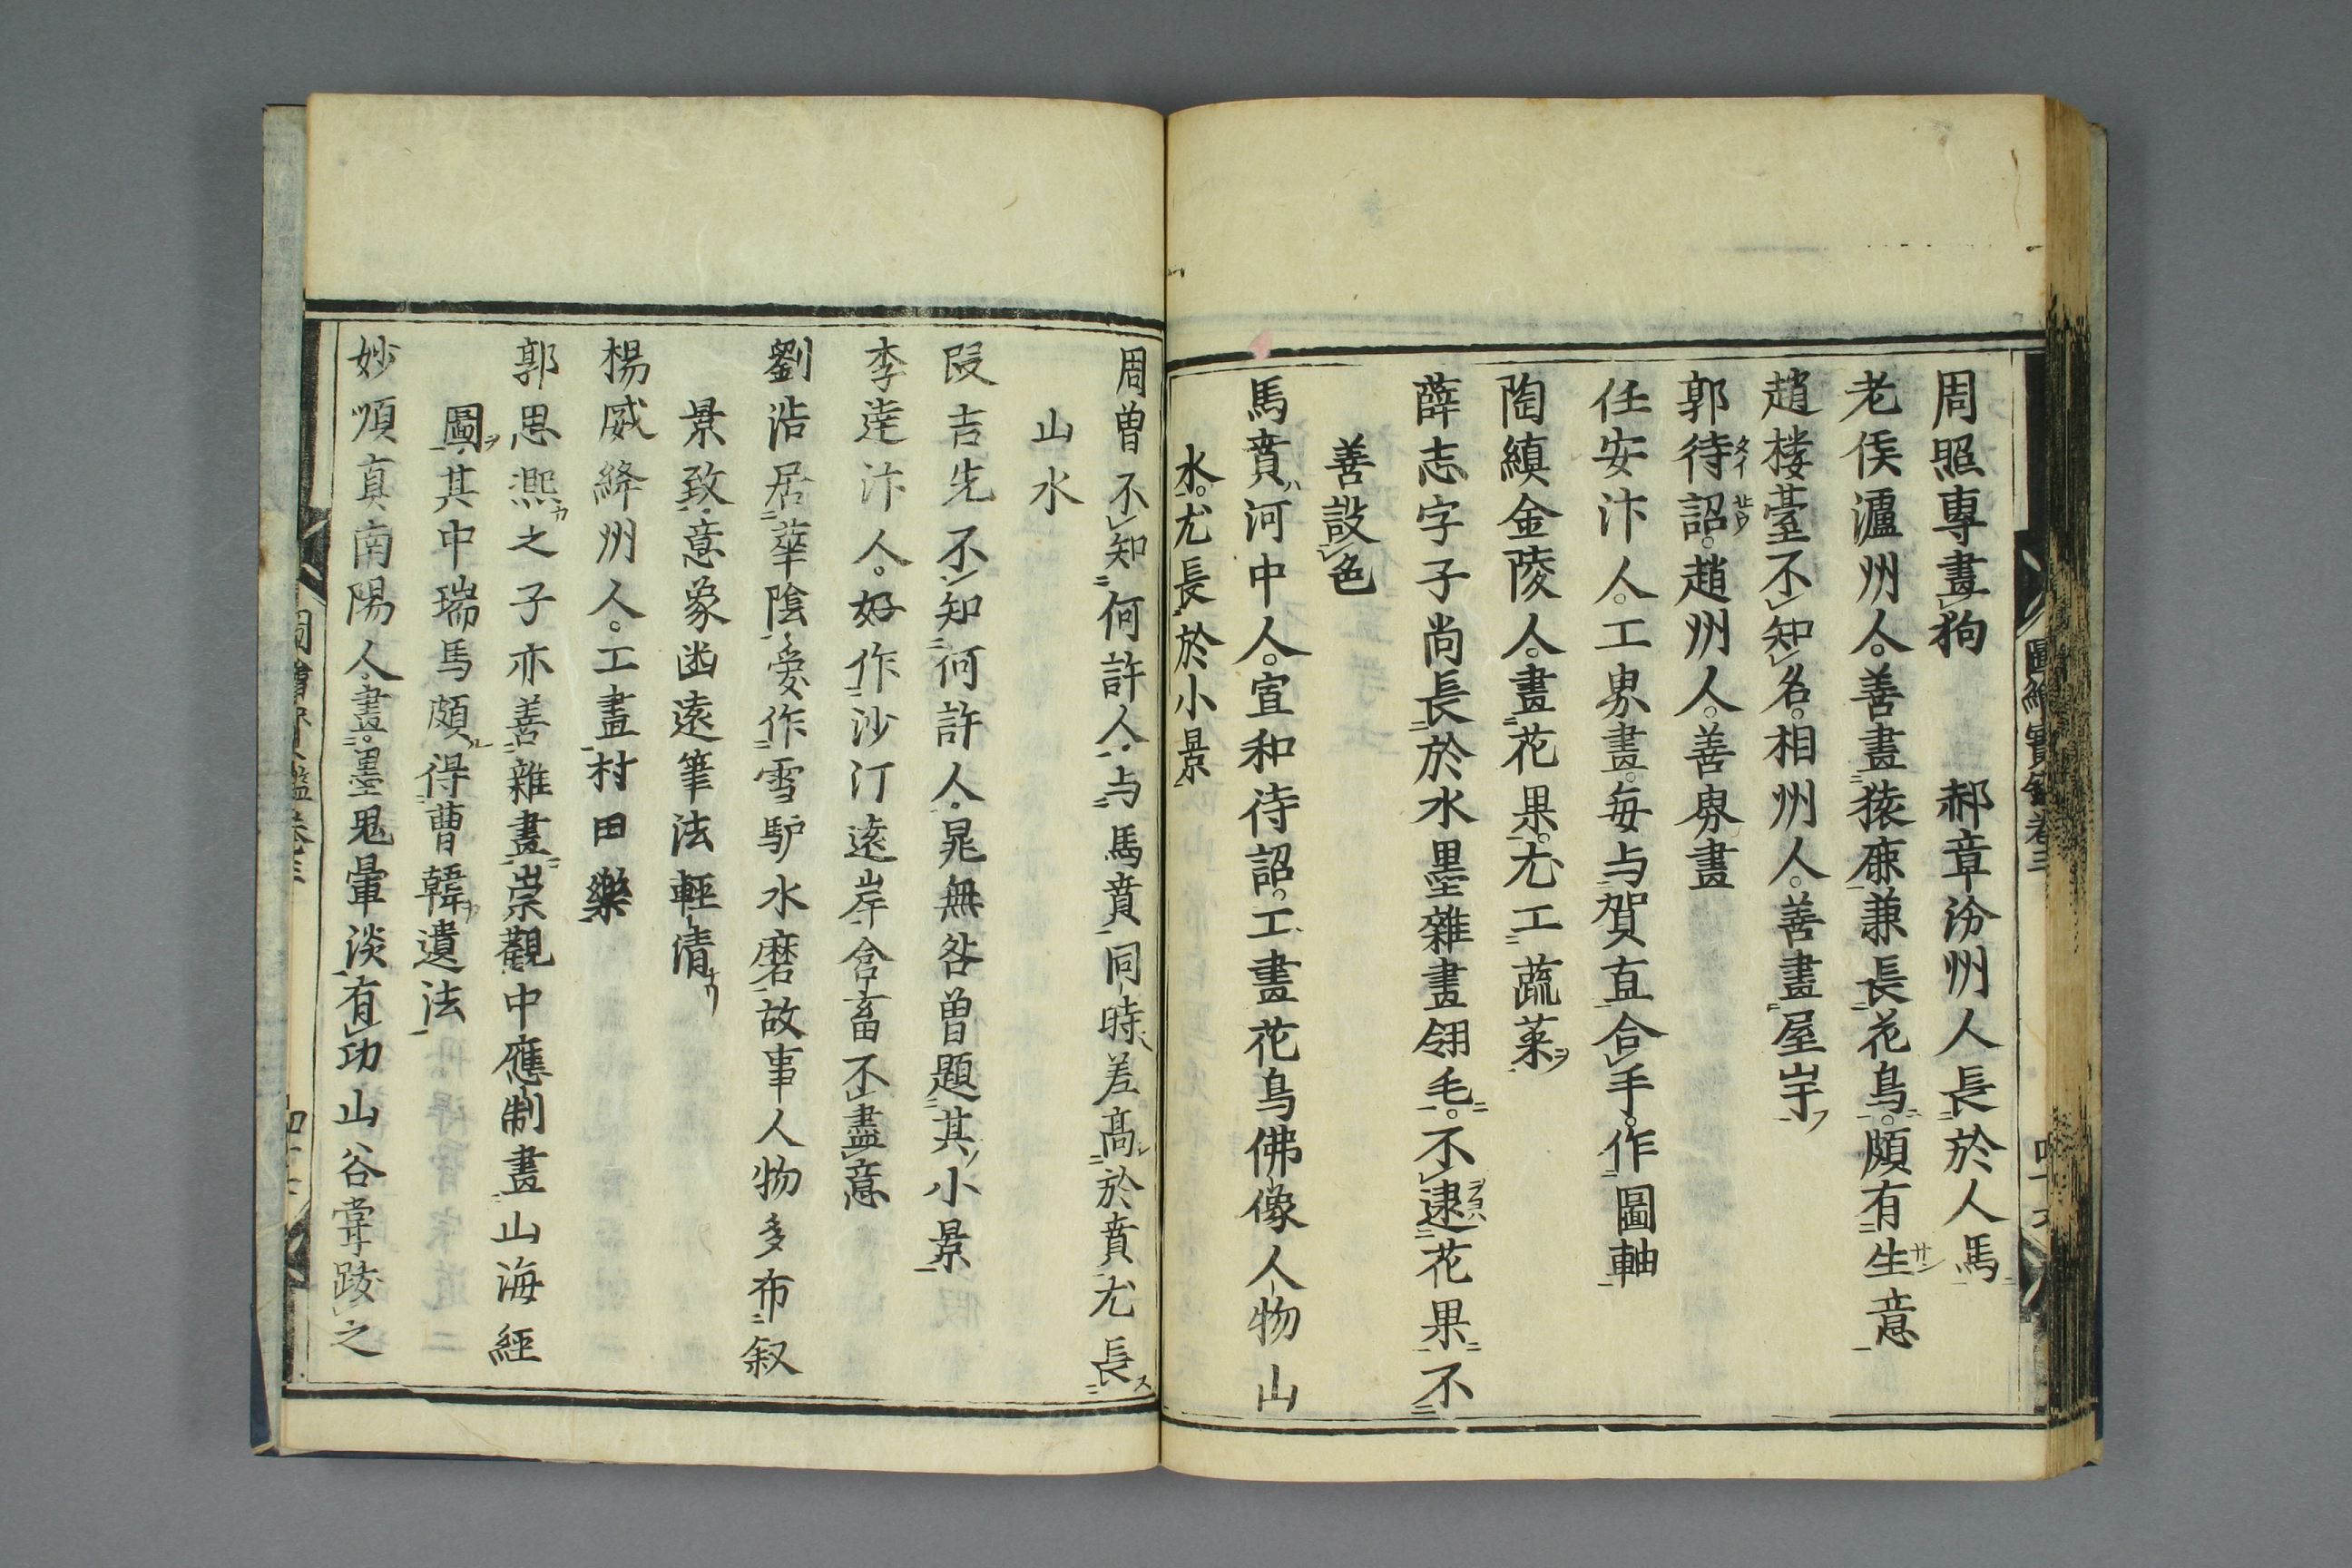 周照專畫狗　郝章汾州人長於人馬
老侯瀘州人善畫猿鹿兼長花鳥頗有生意
趙樓臺不知名相州人善畫屋宇
郭待詔趙州人善界畫
任安汴人工界畫每与賀直合手作圖軸
陶縝金陵人畫花果尤工蔬菜
薛志字子尚長於水墨雜畫翎毛不逮花果不
善設色
馬賁河中人宣和待詔工畫花鳥佛像人物山
水尤長於小景
周曽不知何許人与馬賁同時差髙於賁尤長
山水
段吉先不知何許人晁無咎曽題其小景
李逹汴人好作沙汀遠岸含畜不盡意
劉浩居華陰愛作雪驴水磨故事人物多布叙
景致意象幽遠筆法輕清
楊威絳州人工畫村田樂
郭思熙之子亦善雜畫崇觀中應制畫山海經
圖其中瑞馬頗得曹韓遺法
妙順真南陽人畫墨鬼暈淡有功山谷嘗跋之
圖繪寳鑑卷三